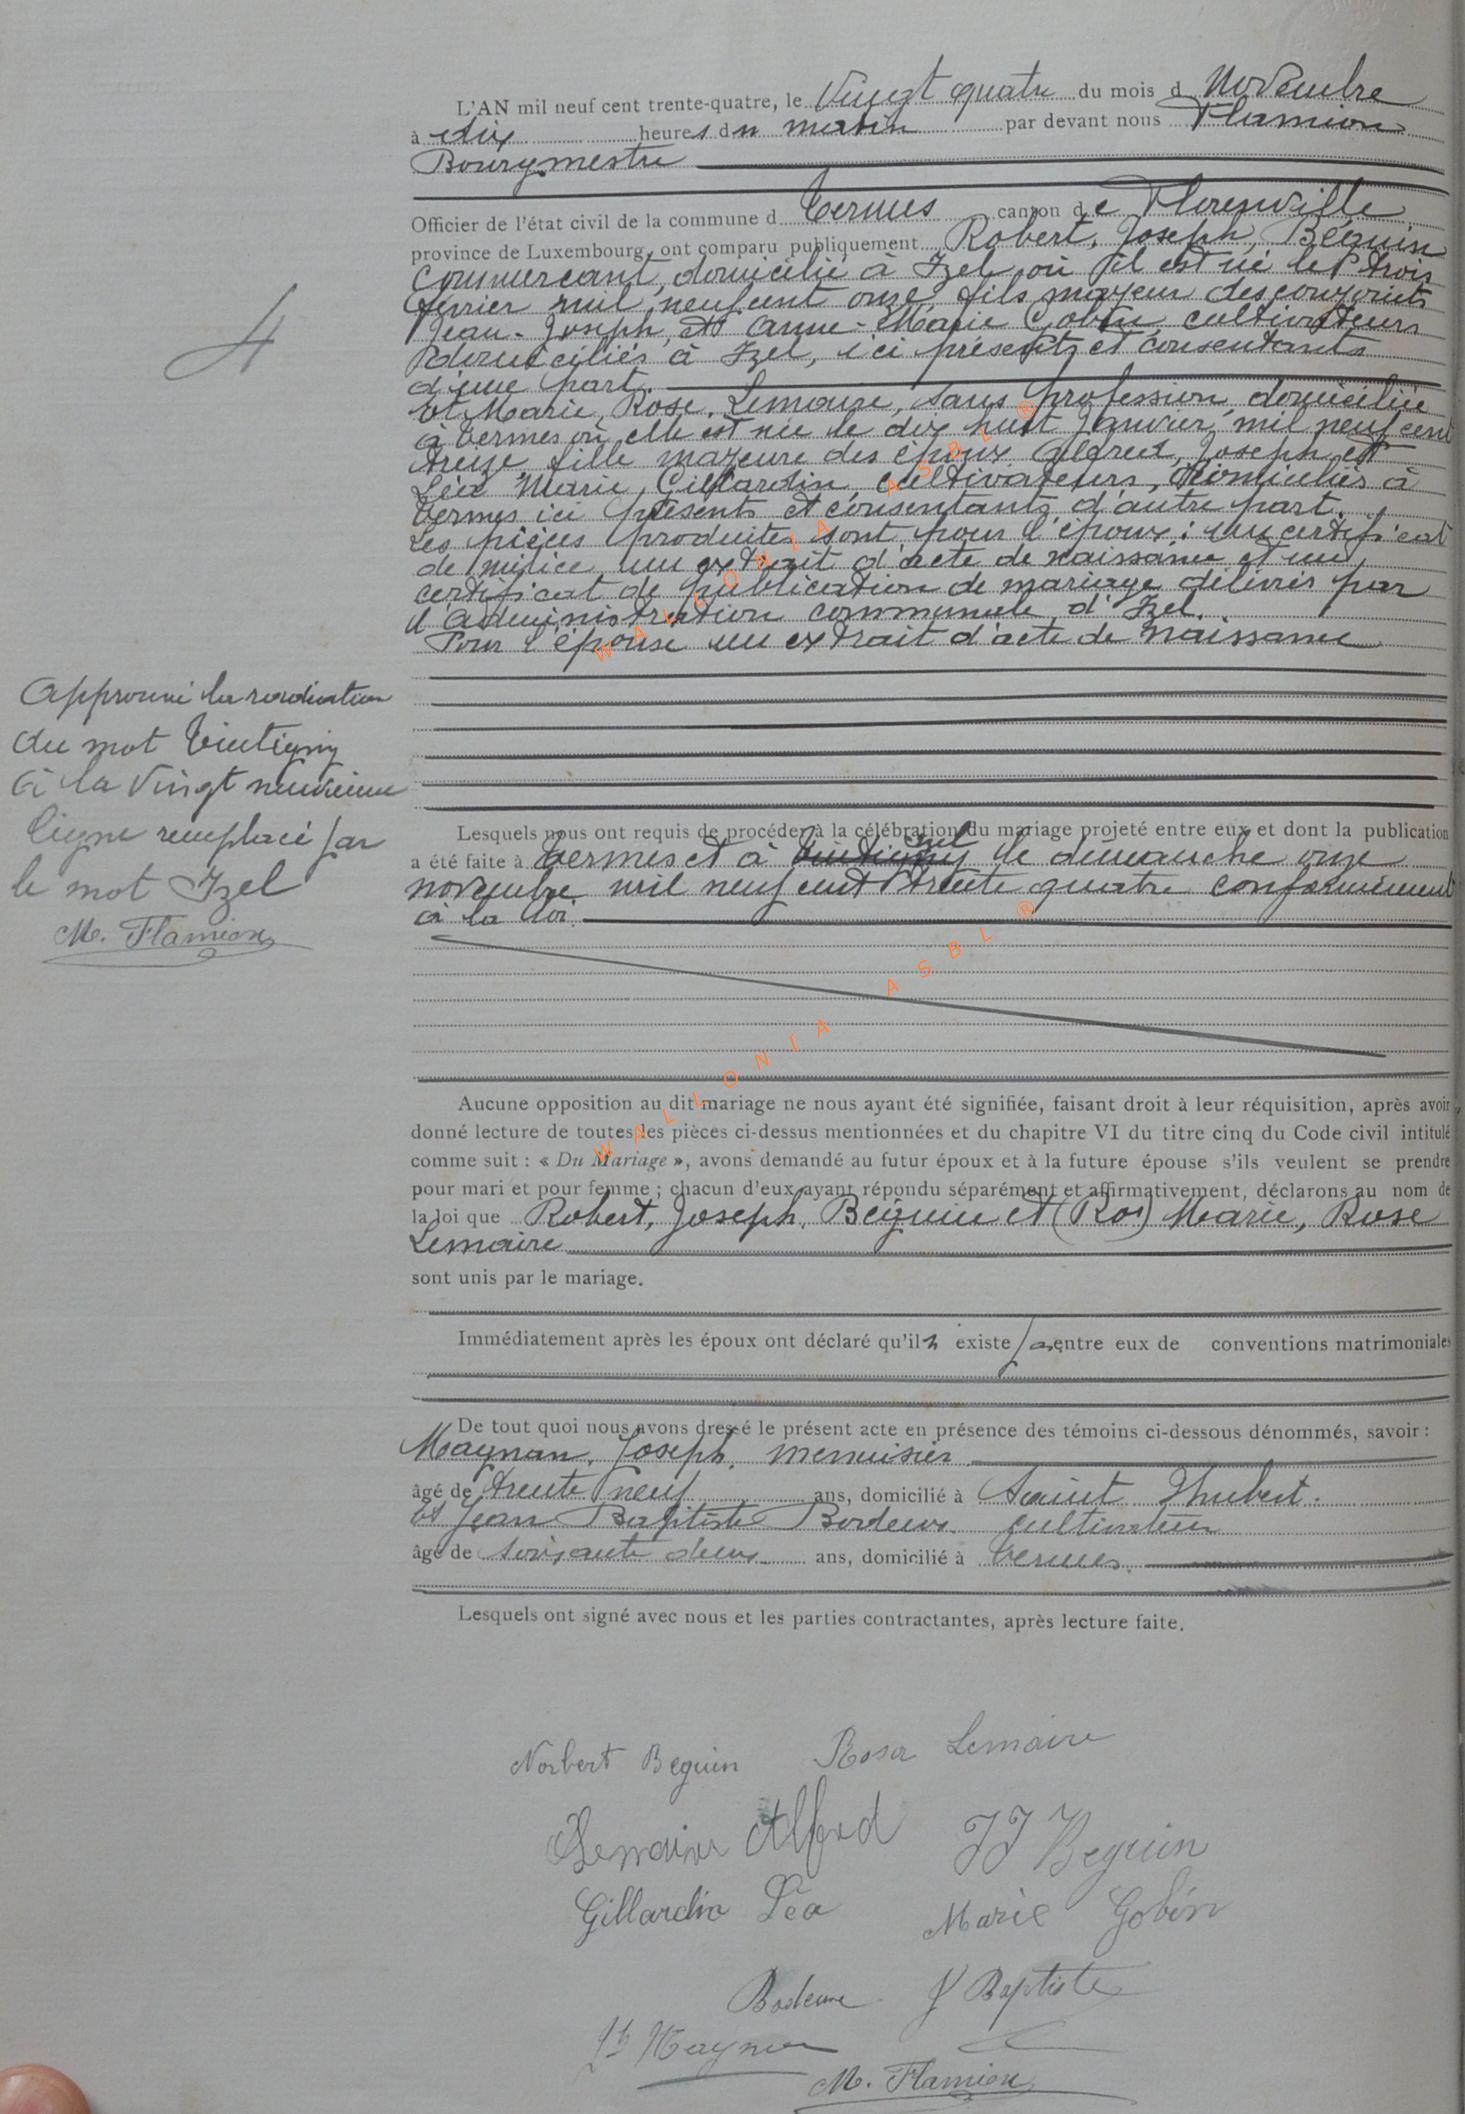 L'AN mil neuf cent trente-quatre, le Vingt quatre du mois d Novembre
à dix heures du matin par devant nous Flamion
Bourgmestre
Officier de l'état civil de la commune d Termes canton de Florenville
province de Luxembourg, ont comparu publiquement Robert, Joseph, Béguin
commercant, domicilié à Izel où il est né le trois
février mil neuf cent onze, fils majeur des conjoints
Jean-Joseph, et Anne-Marie Gobin, cultivateurs
domiciliés à Izel, ici présents et consentants
d'une part.
et Marie, Rose, Lemaire, sans profession, domiciliée
à Termes où elle est née le dix huit Janvier, mil neuf cent
treize, fille majeure des époux Alfred, Joseph et
Léa Marie, Gillardin, cultivateurs, domiciliés à
Termes ici présents et consentants d'autre part.
Les pièces produites sont pour l'époux: un certificat
de milice, un extrait d'acte de naissance et un
certificat de publication de mariage délivrés par
l'administration communale d'Izel.
Pour l'épouse un extrait d'acte de naissance
Approuvé la radiation
du mot Tintigny
à la Vingt neuvième
ligne remplacé par
le mot Izel
M. Flamion
4
Lesquels nous ont requis de procéder à la célébration du mariage projeté entre eux et dont la publication
Izel
a été faite à Termes et à Tintigny le dimanche onze
novembre mil neuf cent trente quatre conformément
à la loi.
Aucune opposition au dit mariage ne nous ayant été signifiée, faisant droit à leur réquisition, après avoir
donné lecture de toutes les pièces ci-dessus mentionnées et du chapitre VI du titre cinq du Code civil intitulé
comme suit : « Du Mariage », avons demandé au futur époux et à la future épouse s'ils veulent se prendre
pour mari et pour femme ; chacun d'eux ayant répondu séparément et affirmativement, déclarons au nom de
la loi que Robert, Joseph, Béguin et (Ros) Marie, Rose
Lemaire
sont unis par le mariage.
Immédiatement après les époux ont déclaré qu'il n existe pas entre eux de conventions matrimoniales
De tout quoi nous avons dressé le présent acte en présence des témoins ci-dessous dénommés, savoir :
Magnan, Joseph, menuisier
âgé de trente neuf ans, domicilié à Saint Hubert.
et Jean Baptiste cultivateur
âgé de soixante deux ans, domicilié à Termes.
Lesquels ont signé avec nous et les parties contractantes, après lecture faite.
Norbert Beguin Rosa Lemaire
Lemaire Alfred JJ Beguin
Gillardin Léa Marie Gobin
J Baptiste
M. Flamion
WALLONIA ASBL ®
WALLONIA ASBL ®